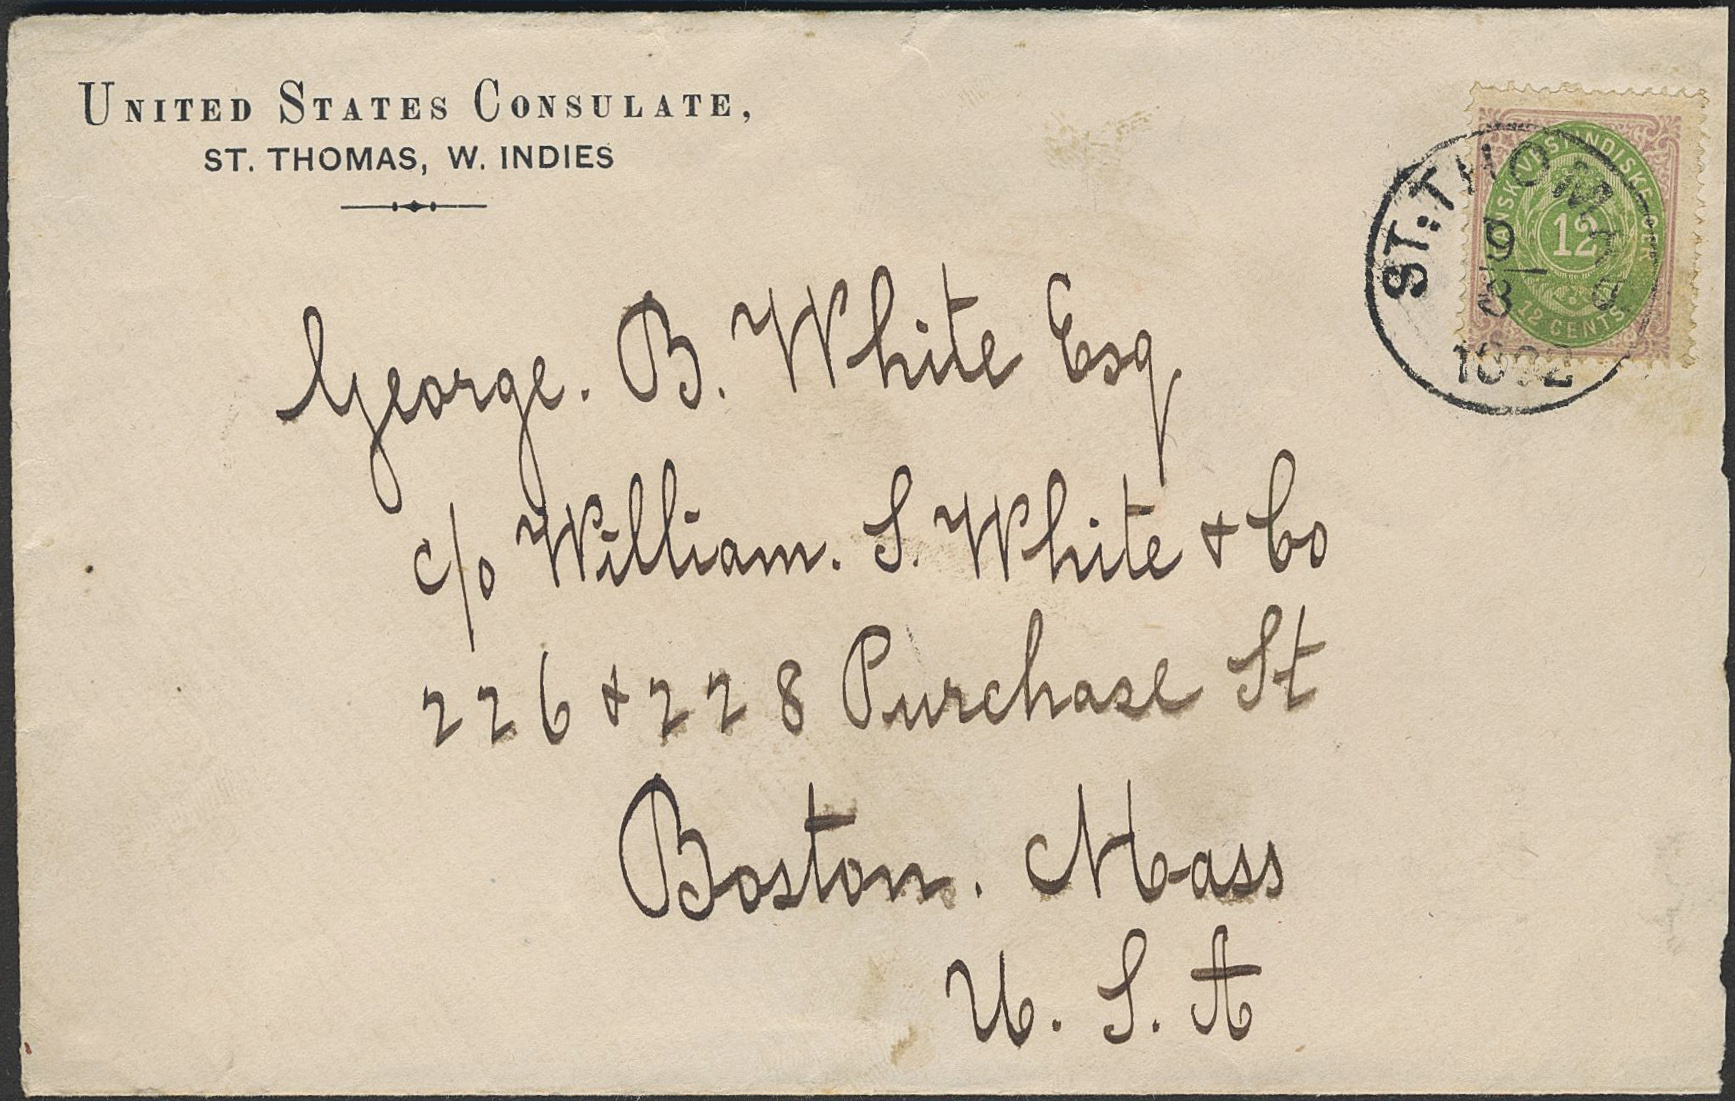 UNITED STATES CONSULATE,
ST. THOMAS, W. INDIES
George. B. White Esq
c/o William. S. White & Co
226 & 228 Purchase St
Boston. Mass
U. S. A
DANSK VESTINDISKE
12
12 CENTS
ST: THOMAS
9/3
1892